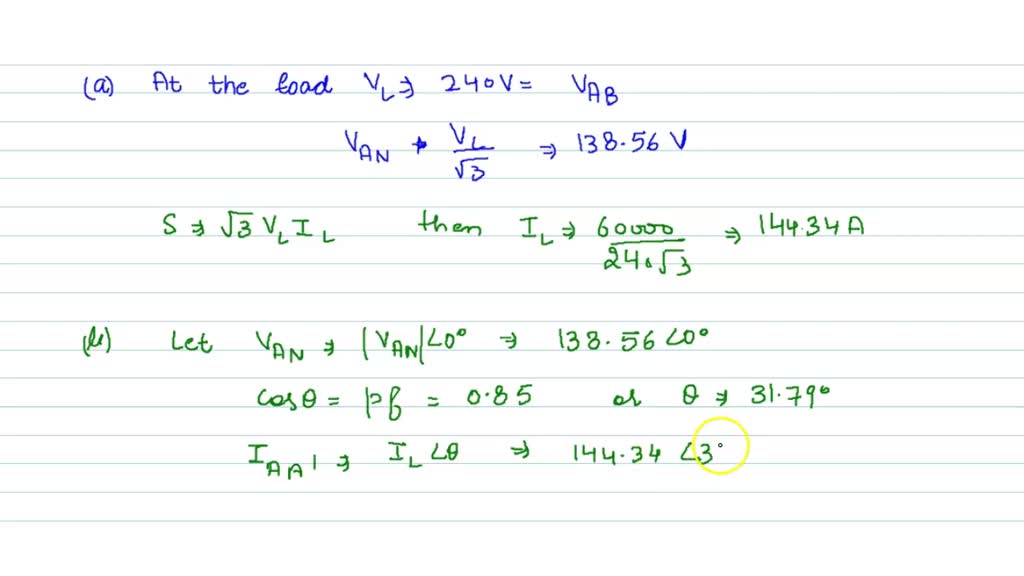 (a) At the load V_L ⇒ 240V = V_AB
V_AN = V_L/√3 ⇒ 138.56 V
S ⇒ √3 V_L I_L then I_L ⇒ 60000/240√3 ⇒ 144.34 A
(b) Let V_AN ⇒ |V_AN|∠0° ⇒ 138.56 ∠0°
cosθ = pf = 0.85 or θ ⇒ 31.79°
I_AA' ⇒ I_L ∠θ ⇒ 144.34 ∠3